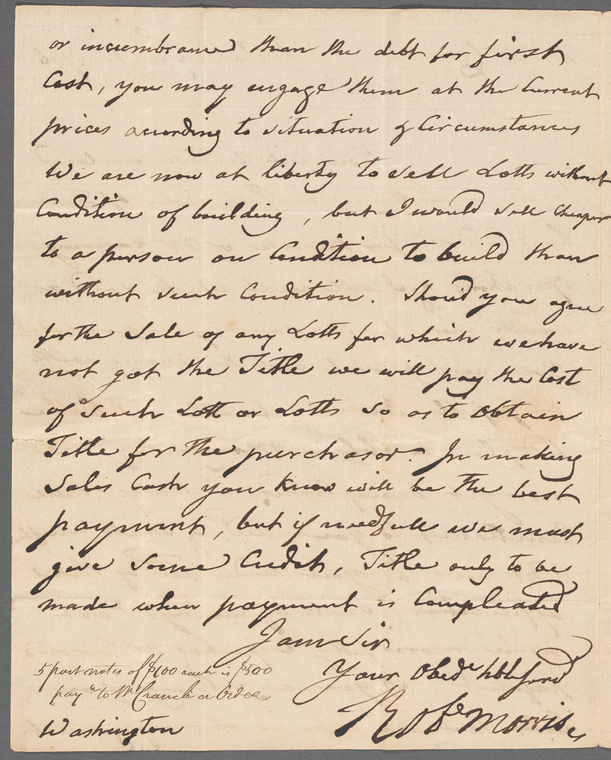 or incumbrance than the debt for first
Cost, you may engage them at the Current
prices according to situation & Circumstances
We are now at liberty to sell Lotts without
Condition of building, but I would sell Cheaper
to a person on Condition to build than
without such Condition. Should you agree
for the Sale of any Lotts for which we have
not got the Title we will pay the Cost
of such Lott or Lotts so as to Obtain
Title for the purchasor. In making
Sales Cash you know will be the best
payment, but if needfull we must
give some Credit, Title only to be
made when payment is Compleated
I am Sir
Your Obedt hble Servt
Robt Morris
5 post notes of $100 each is $500
pay'e to Wm Cranch or Order
Washington